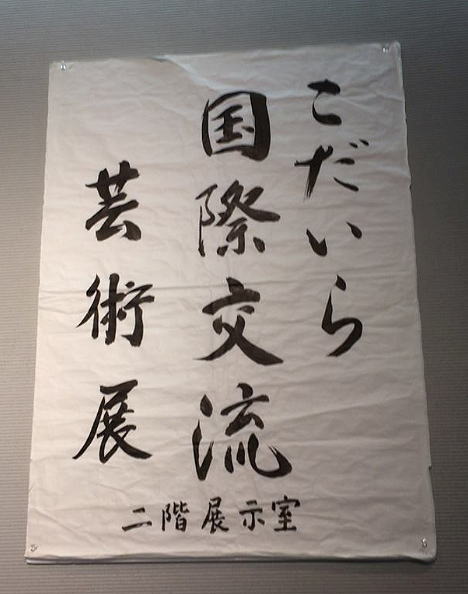 こだいら
国際交流
芸術展
二階展示室